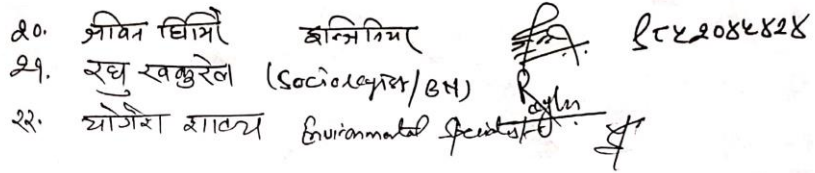 २०. जीवन घिमिरे इन्जिनियर ९८५२०४५४२४
२१. रघु खकुरेल (Sociologist/BH)
२२. योगेश शाक्य Environmental Specialist